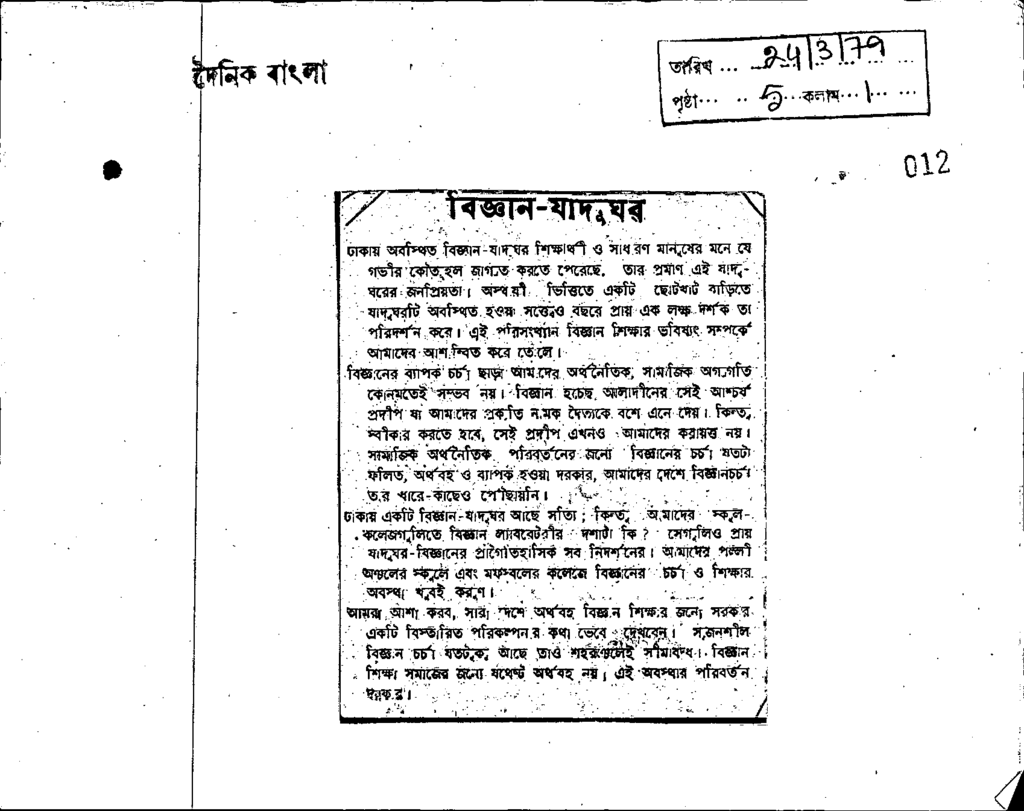 দৈনিক বাংলা
তারিখ ... 24/3/79 ... ...
পৃষ্ঠা... .. 5 ...কলাম... 1 ... ...
012
বিজ্ঞান-যাদুঘর
ঢাকায় অবস্থিত বিজ্ঞান-যাদুঘর শিক্ষার্থী ও সাধারণ মানুষের মনে যে
গভীর কৌতূহল জাগাতে করতে পেরেছে, তার প্রমাণ এই যাদু-
ঘরের জনপ্রিয়তা। অস্থায়ী ভিত্তিতে একটি ছোটখাট বাড়িতে
যাদুঘরটি অবস্থিত হওয়া সত্ত্বেও বছরে প্রায় এক লক্ষ দর্শক তা
পরিদর্শন করে। এই পরিসংখ্যান বিজ্ঞান শিক্ষার ভবিষ্যৎ সম্পর্কে
আমাদের আশান্বিত করে তোলে।
বিজ্ঞানের ব্যাপক চর্চা ছাড়া আমাদের অর্থনৈতিক, সামাজিক অগ্রগতি
কোনমতেই সম্ভব নয়। বিজ্ঞান হচ্ছে আলাদীনের সেই আশ্চর্য
প্রদীপ যা আমাদের প্রকৃতি নামক দৈত্যকে বশে এনে দেয়। কিন্তু
স্বীকার করতে হবে, সেই প্রদীপ এখনও আমাদের করায়ত্ত নয়।
সামাজিক অর্থনৈতিক পরিবর্তনের জন্যে বিজ্ঞানের চর্চা যতটা
ফলিত, অর্থবহ ও ব্যাপক হওয়া দরকার, আমাদের দেশে বিজ্ঞানচর্চা
তার ধারে-কাছেও পৌঁছায়নি।
ঢাকায় একটি বিজ্ঞান-যাদুঘর আছে সত্যি; কিন্তু আমাদের স্কুল-
কলেজগুলিতে বিজ্ঞান ল্যাবরেটরীর দশাটা কি? সেগুলিও প্রায়
যাদুঘর-বিজ্ঞানের প্রাগৈতিহাসিক সব নিদর্শনের। আমাদের পল্লী
অঞ্চলের স্কুলে এবং মফস্বলের কলেজে বিজ্ঞানের চর্চা ও শিক্ষার
অবস্থা খুবই করুণ।
আমরা আশা করব, সারা দেশে অর্থবহ বিজ্ঞান শিক্ষার জন্যে সরকার
একটি বিস্তারিত পরিকল্পনার কথা ভেবে দেখবেন। সৃজনশীল
বিজ্ঞান চর্চা যতটুকু আছে তাও শহরাঞ্চলেই সীমাবদ্ধ। বিজ্ঞান
শিক্ষা সমাজের জন্যে যথেষ্ট অর্থবহ নয়। এই অবস্থার পরিবর্তন
দরকার।